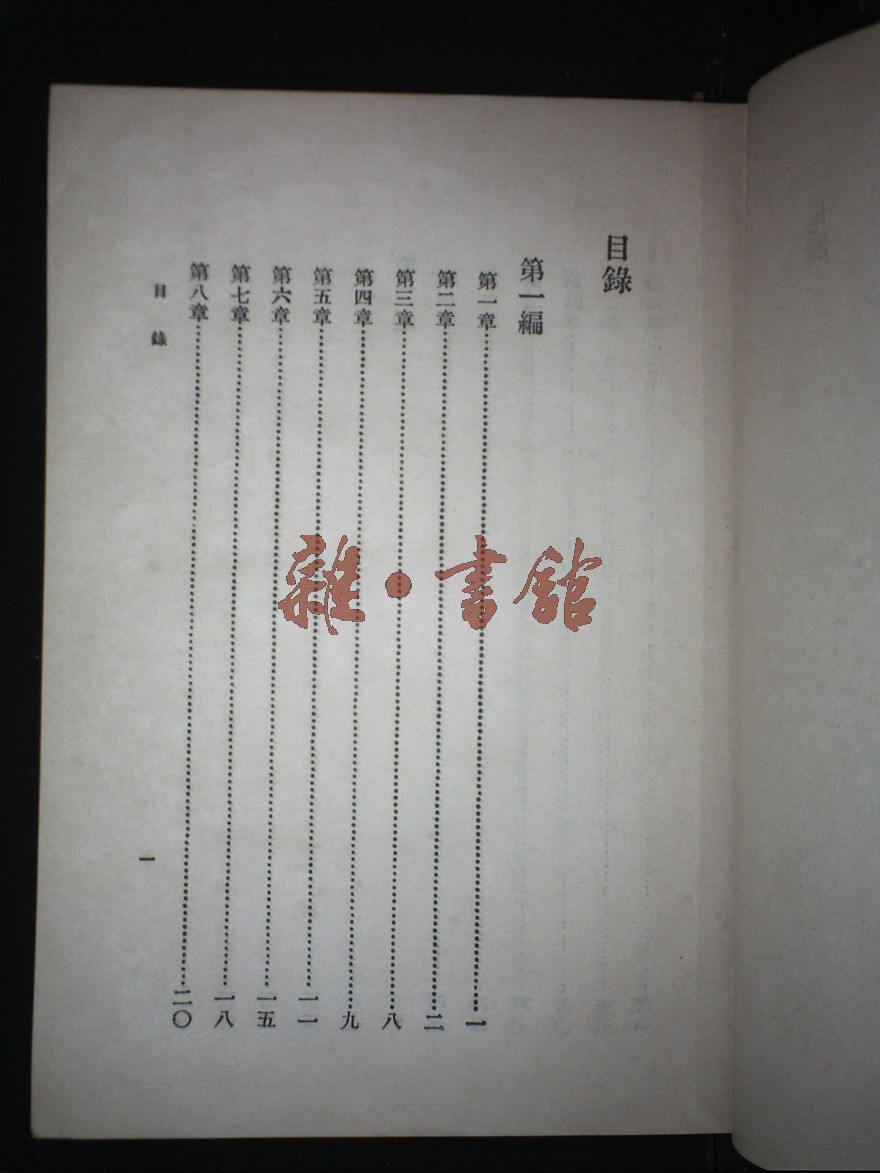 目錄
第一編
第一章……一
第二章……二
第三章……八
第四章……九
第五章……一一
第六章……一五
第七章……一八
第八章……二〇
目錄
一
雜·書館